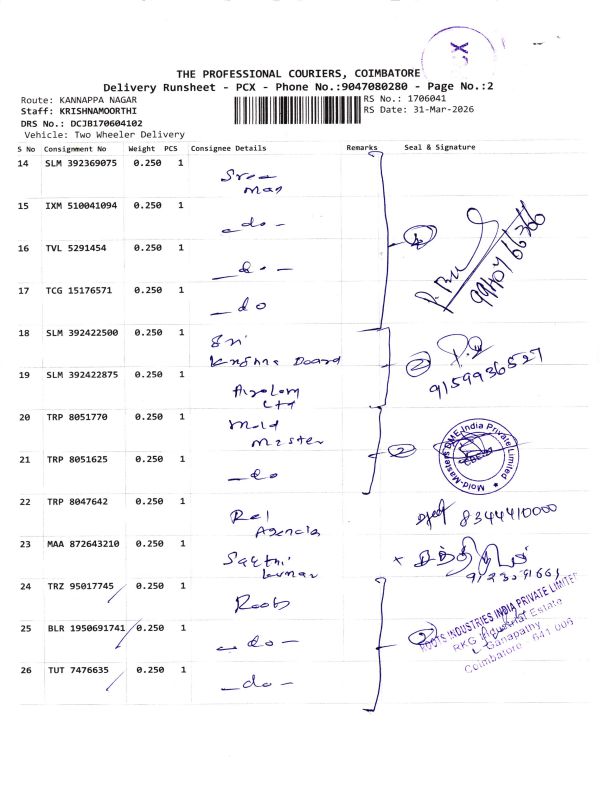 THE PROFESSIONAL COURIERS, COIMBATORE
Delivery Runsheet - PCX - Phone No.:9047080280 - Page No.:2
Route: KANNAPPA NAGAR
Staff: KRISHNAMOORTHI
DRS No.: DCJB170604102
Vehicle: Two Wheeler Delivery
RS No.: 1706041
RS Date: 31-Mar-2026
S No Consignment No Weight PCS Consignee Details Remarks Seal & Signature
14 SLM 392369075 0.250 1
15 IXM 510041094 0.250 1 - do -
16 TVL 5291454 0.250 1 - do -
17 TCG 15176571 0.250 1 - do
4
18 SLM 392422500 0.250 1 Sri
Krishna Board
19 SLM 392422875 0.250 1
Ltd
2
9159936527
20 TRP 8051770 0.250 1 Mold
Master
21 TRP 8051625 0.250 1 - do
2
Mold-Masters DME India Private Limited
22 TRP 8047642 0.250 1
8344410000
23 MAA 872643210 0.250 1
24 TRZ 95017745 0.250 1 Roots
25 BLR 1950691741 0.250 1 - do -
26 TUT 7476635 0.250 1 - do -
ROOTS INDUSTRIES INDIA PRIVATE LIMITED
RKG Industrial Estate
Ganapathy
Coimbatore - 641 006